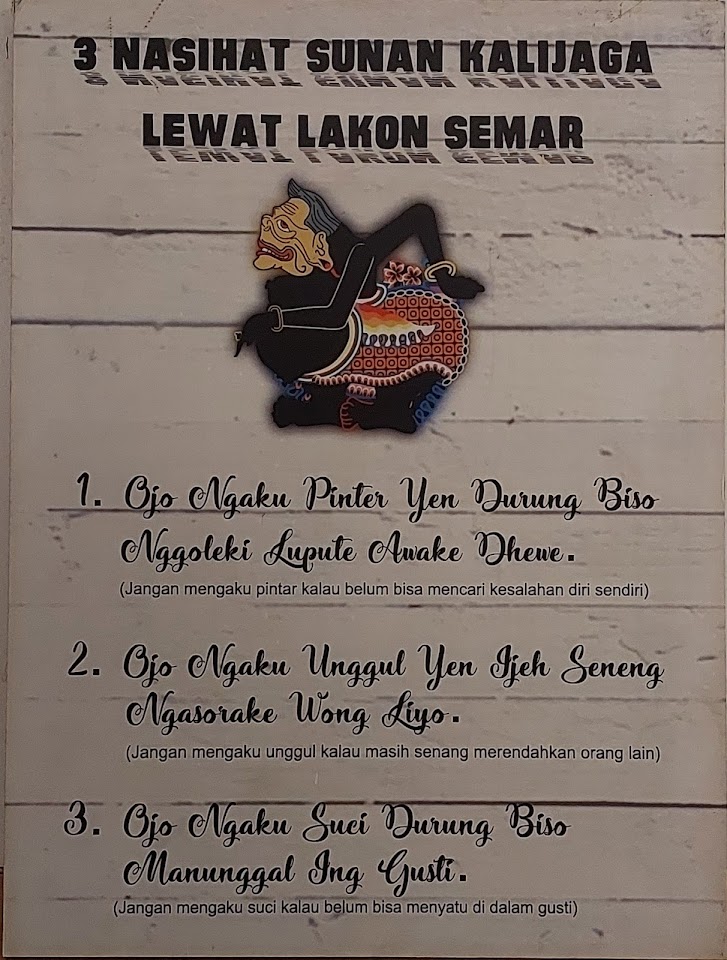 3 NASIHAT SUNAN KALIJAGA
LEWAT LAKON SEMAR
1. Ojo Ngaku Pinter Yen Durung Biso
Nggoleki Lupute Awake Dhewe.
(Jangan mengaku pintar kalau belum bisa mencari kesalahan diri sendiri)
2. Ojo Ngaku Unggul Yen Ijeh Seneng
Ngasorake Wong Liyo.
(Jangan mengaku unggul kalau masih senang merendahkan orang lain)
3. Ojo Ngaku Suci Durung Biso
Manunggal Ing Gusti.
(Jangan mengaku suci kalau belum bisa menyatu di dalam gusti)